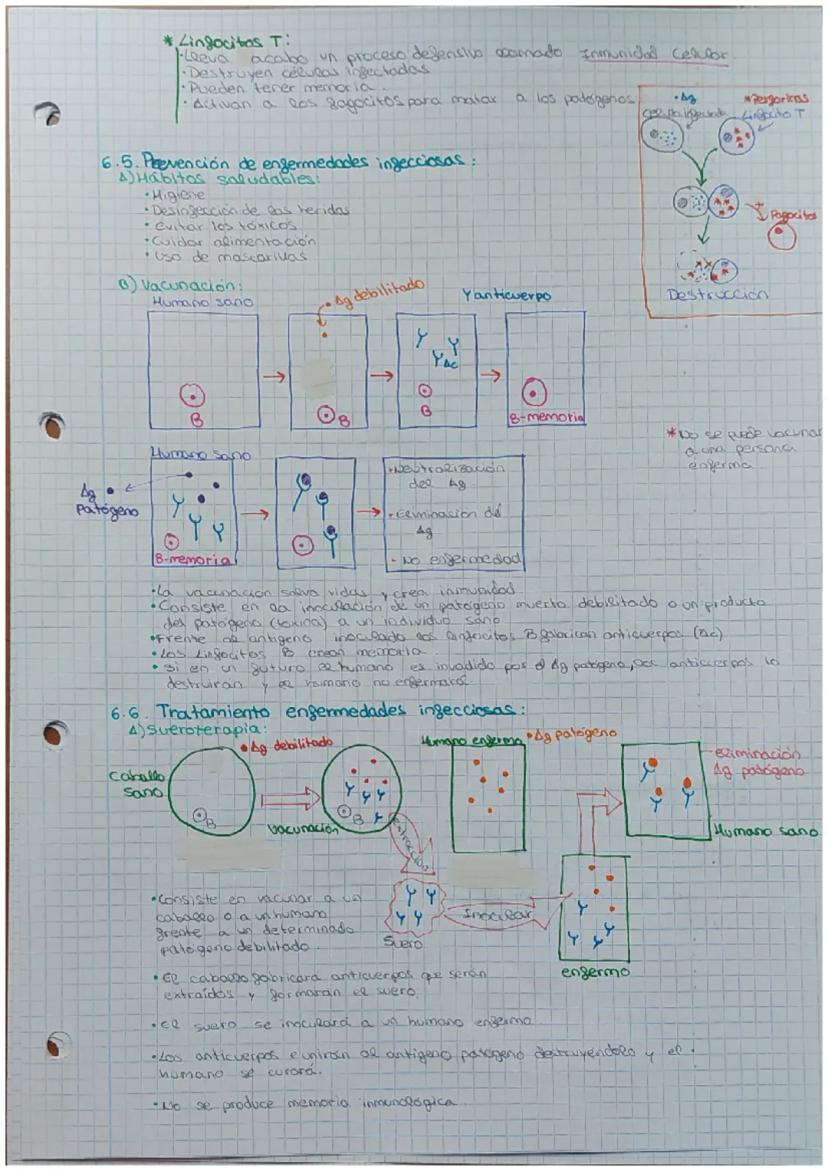 * Linfocitos T:
· Lleva acabo un proceso defensivo llamado Inmunidad Celular.
· Destruyen células infectadas
· Pueden tener memoria.
· Activan a los fagocitos para matar a los patógenos
· Ag
* Perforinas
Linfocito T
Fagocitos
Destrucción
6.5. Prevención de enfermedades infecciosas:
A) Hábitos saludables:
· Higiene
· Desinfección de las heridas
· Evitar los tóxicos
· Cuidar alimentación
· Uso de mascarillas
B) Vacunación:
Humano sano
· Ag debilitado
Y anticuerpo
B
B
Ac
B
B-memoria
* No se puede vacunar
a una persona
enferma.
Humano sano
Ag
patógeno
B-memoria
· Neutralización
del Ag
· Eliminación del
Ag
· No enfermedad
· La vacunación salva vidas y crea inmunidad.
· Consiste en la inoculación de un patógeno muerto debilitado o un producto
del patógeno (toxina) a un individuo sano
· Frente al antígeno inoculado los linfocitos B fabrican anticuerpos (Ac)
· Los linfocitos B crean memoria.
· Si en un futuro el humano es invadido por el Ag patógeno, los anticuerpos lo
destruirán y el humano no enfermará.
6.6. Tratamiento enfermedades infecciosas:
A) Sueroterapia:
· Ag debilitado
Humano enfermo
· Ag patógeno
eliminación
Ag patógeno
Caballo
sano
B
Vacunación
B
extracción
Humano sano
Suero
Inocular
enfermo
· Consiste en vacunar a un
caballo o a un humano
frente a un determinado
patógeno debilitado.
· El caballo fabricará anticuerpos que serán
extraídos y formarán el suero.
· El suero se inoculará a un humano enfermo
· Los anticuerpos e unirán al antígeno patógeno destruyendolo y el
humano se curará.
· No se produce memoria inmunológica.